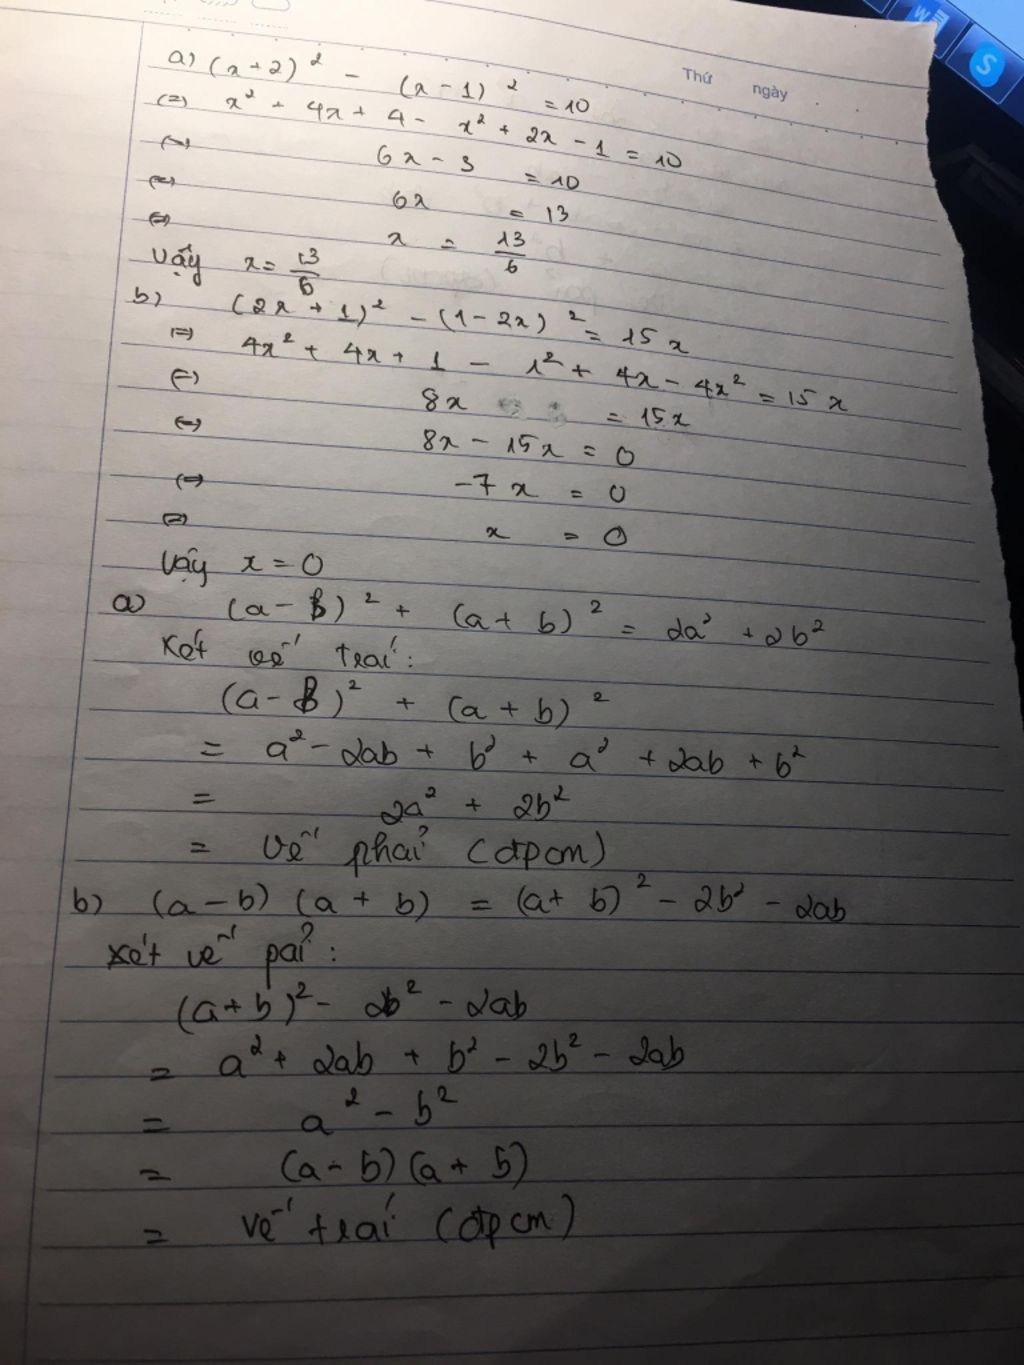 Thứ ngày
a) (x+2)² - (x-1)² = 10
(=) x² + 4x + 4 - x² + 2x - 1 = 10
(=) 6x - 3 = 10
(=) 6x = 13
(=) x = 13/6
Vậy x = 13/6
b) (2x + 1)² - (1 - 2x)² = 15x
(=) 4x² + 4x + 1 - 1² + 4x - 4x² = 15x
(=) 8x = 15x
(=) 8x - 15x = 0
(=) -7x = 0
(=) x = 0
Vậy x = 0
a) (a - b)² + (a + b)² = 2a² + 2b²
Xét vế trái:
(a - b)² + (a + b)²
= a² - 2ab + b² + a² + 2ab + b²
= 2a² + 2b²
= Vế phải (đpcm)
b) (a - b) (a + b) = (a + b)² - 2b² - 2ab
Xét vế pải:
(a + b)² - 2b² - 2ab
= a² + 2ab + b² - 2b² - 2ab
= a² - b²
= (a - b) (a + b)
= vế trái (đpcm)